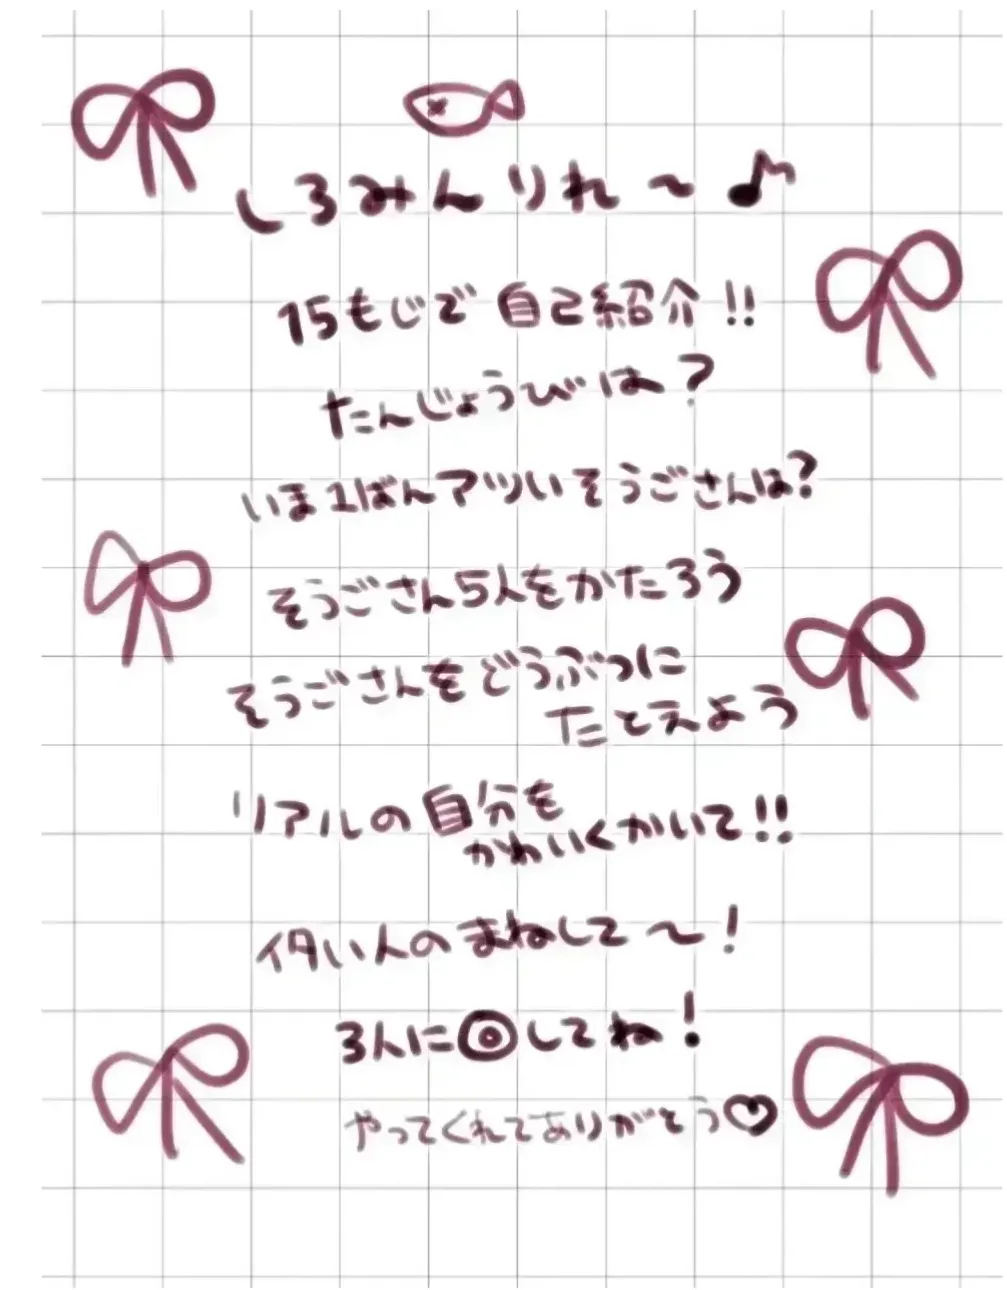 しろみんりれ～♪
15もじで自己紹介!!
たんじょうびは？
いま1ばんアツいそうごさんは？
そうごさん5人をかたろう
そうごさんをどうぶつに
たとえよう
リアルの自分を
かわいくかいて!!
イタい人のまねして～！
3人に◎してね！
やってくれてありがとう♡